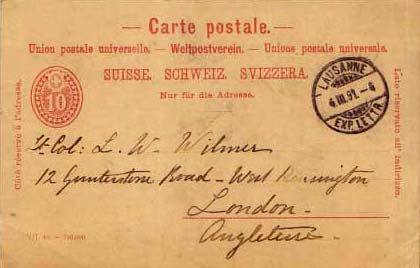 Carte postale.
Union postale universelle. — Weltpostverein. — Unione postale universale.
SUISSE. SCHWEIZ. SVIZZERA.
Nur für die Adresse.
Côté réservé à l'adresse.
10
LAUSANNE
4.III.91.-6
EXP. LETTR.
Lato riservato all' indirizzo.
Lt Col: L. W. Wilmer
12 Gunterstone Road - West Kensington
London.
Angleterre.